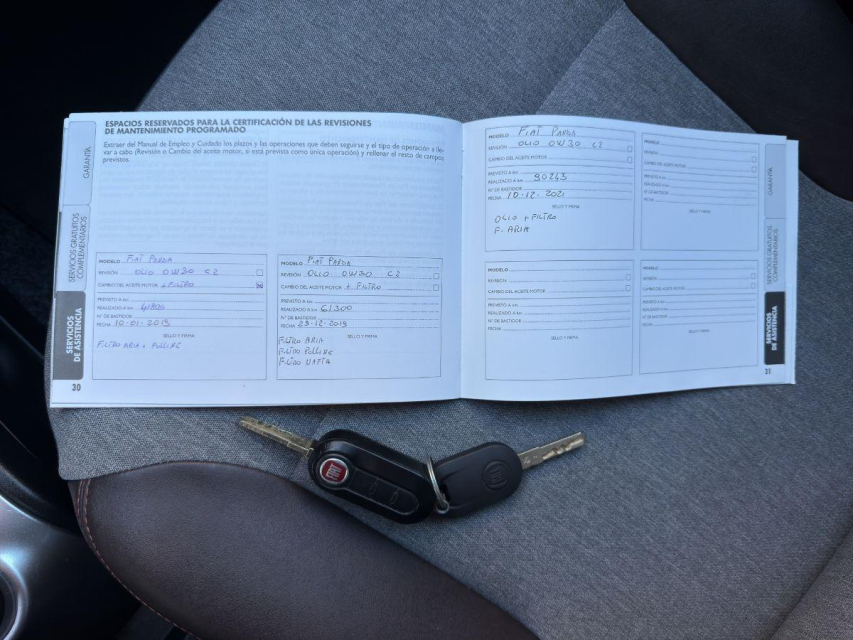 ESPACIOS RESERVADOS PARA LA CERTIFICACIÓN DE LAS REVISIONES
DE MANTENIMIENTO PROGRAMADO
Extraer del Manual de Empleo y Cuidado los plazos y las operaciones que deben seguirse y el tipo de operación a lle-
var a cabo (Revisión o Cambio del aceite motor, si está prevista como única operación) y rellenar el resto de campos
previstos.
GARANTÍA
SERVICIOS GRATUITOS
COMPLEMENTARIOS
SERVICIOS
DE ASISTENCIA
MODELO FIAT PANDA
REVISIÓN OLIO 0W30 C2
CAMBIO DEL ACEITE MOTOR + FILTRO
PREVISTO A km
REALIZADO A km
N° DE BASTIDOR
FECHA 10-01-2019
SELLO Y FIRMA
FILTRO ARIA + POLLINE
30
MODELO FIAT PANDA
REVISIÓN OLIO 0W30 C2
CAMBIO DEL ACEITE MOTOR + FILTRO
PREVISTO A km
REALIZADO A km 61300
N° DE BASTIDOR
FECHA 23-12-2019
SELLO Y FIRMA
FILTRO ARIA
FILTRO POLLINE
FILTRO NAFTA
MODELO FIAT PANDA
REVISIÓN OLIO 0W30 C2
CAMBIO DEL ACEITE MOTOR
PREVISTO A km
REALIZADO A km 90243
N° DE BASTIDOR
FECHA 10-12-2021
SELLO Y FIRMA
OLIO + FILTRO
F. ARIA
MODELO
REVISIÓN
CAMBIO DEL ACEITE MOTOR
PREVISTO A km
REALIZADO A km
N° DE BASTIDOR
FECHA
SELLO Y FIRMA
MODELO
REVISIÓN
CAMBIO DEL ACEITE MOTOR
PREVISTO A km
REALIZADO A km
N° DE BASTIDOR
FECHA
SELLO Y FIRMA
MODELO
REVISIÓN
CAMBIO DEL ACEITE MOTOR
PREVISTO A km
REALIZADO A km
N° DE BASTIDOR
FECHA
SELLO Y FIRMA
GARANTÍA
SERVICIOS GRATUITOS
COMPLEMENTARIOS
SERVICIOS
DE ASISTENCIA
31
FIAT